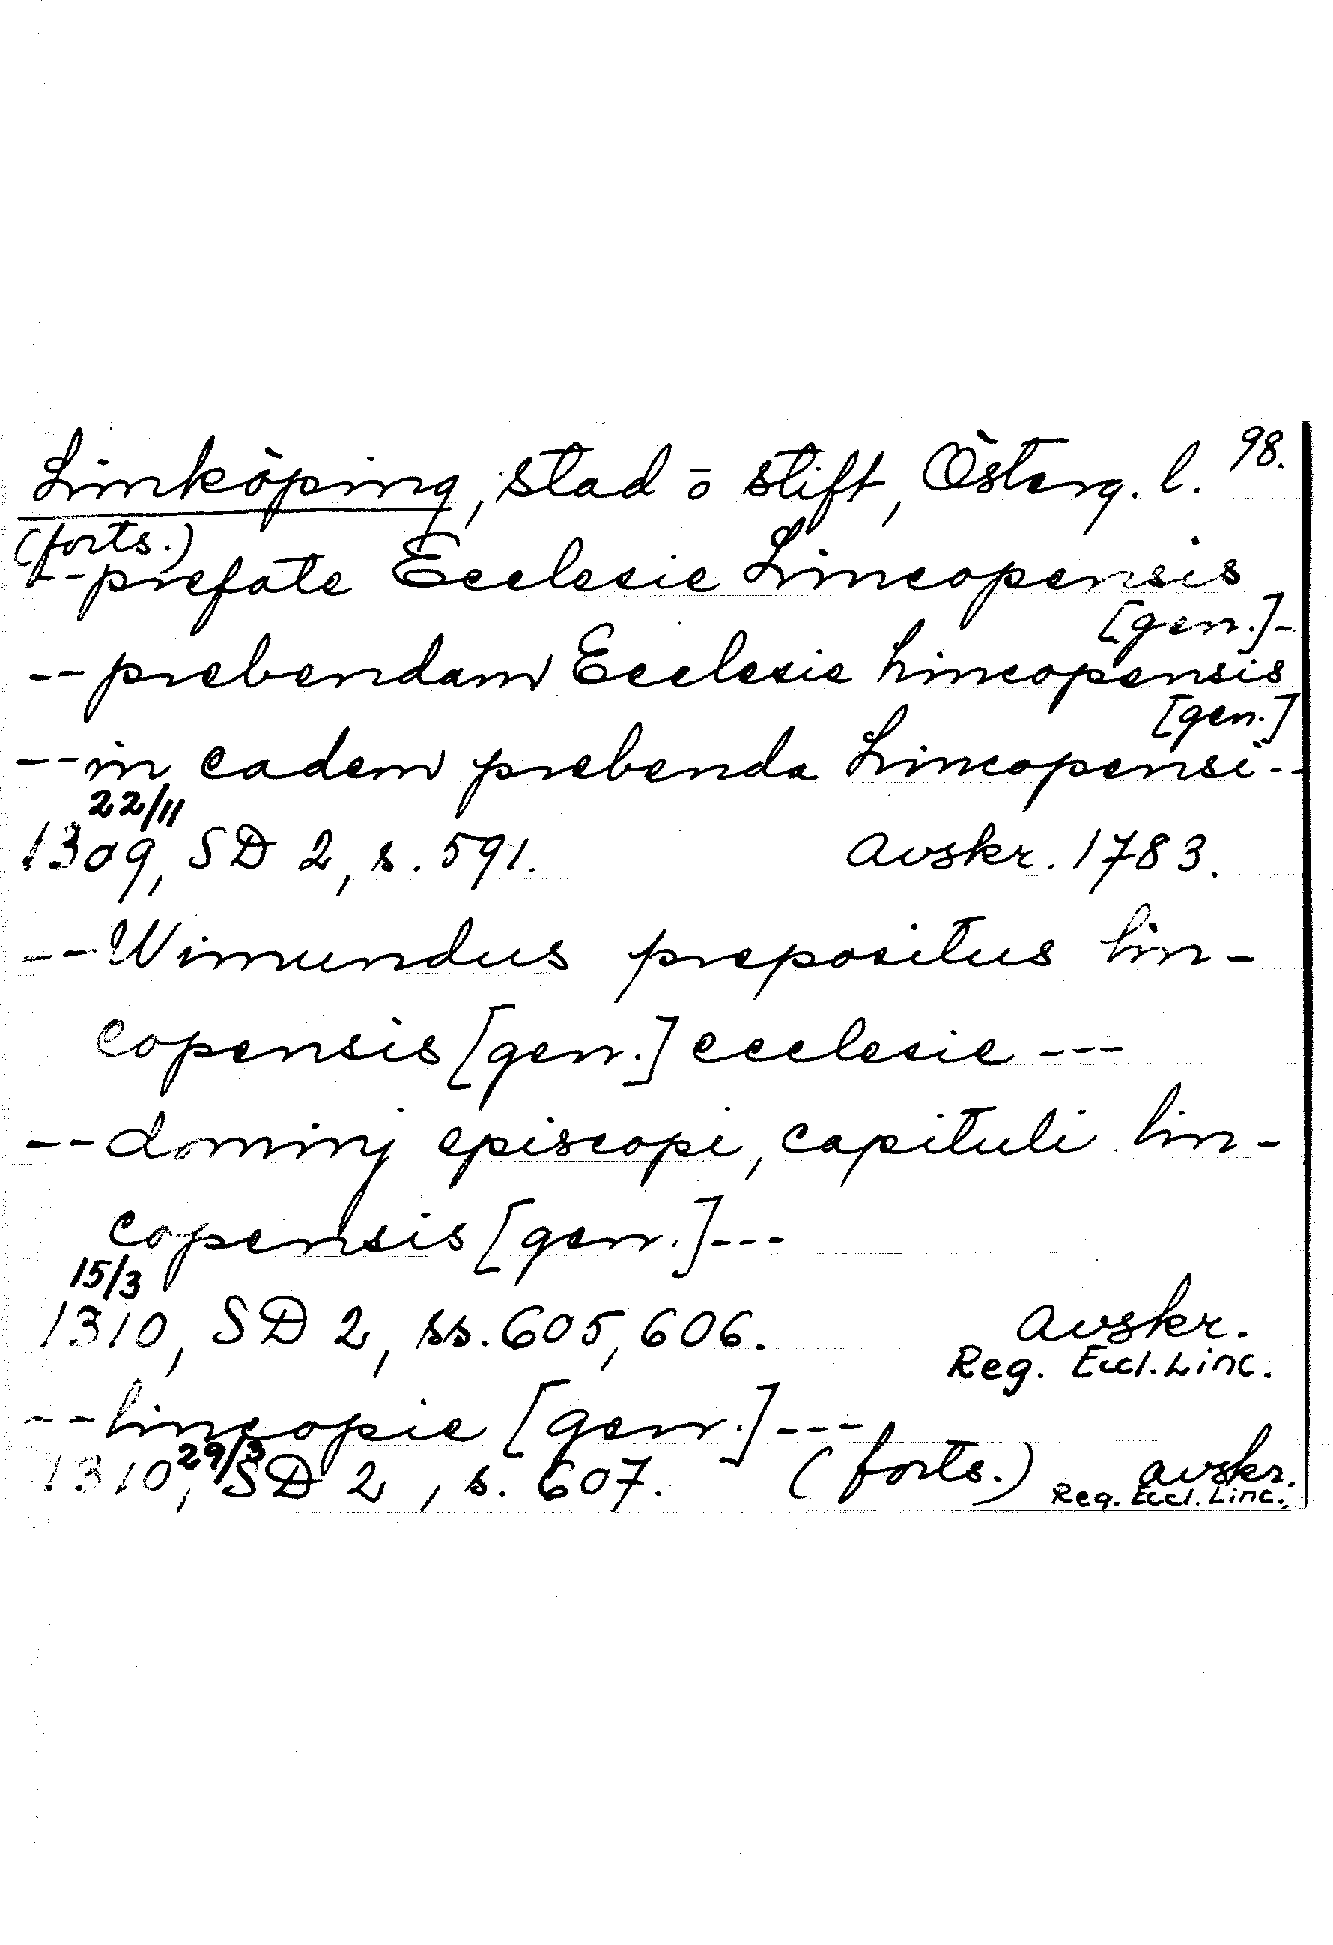 Linköping, stad o stift, Österg. l. 98.
(forts.)
--prefate Ecclesie Lincopensis
[gen.]-
--prebendam Ecclesie Lincopensis
[gen.]
--in eadem prebenda Lincopensi--
22/11
1309, SD 2, s. 591. Avskr. 1783.
--Wimundus prepositus lin-
copensis [gen.] ecclesie ---
--dominj episcopi, capituli lin-
copensis [gen.]---
15/3
1310, SD 2, ss. 605, 606. Avskr.
Reg. Eccl. Linc.
--lincopie [gen.]---
29/3
1310, SD 2, s. 607. (forts.) avskr.
Reg. Eccl. Linc.